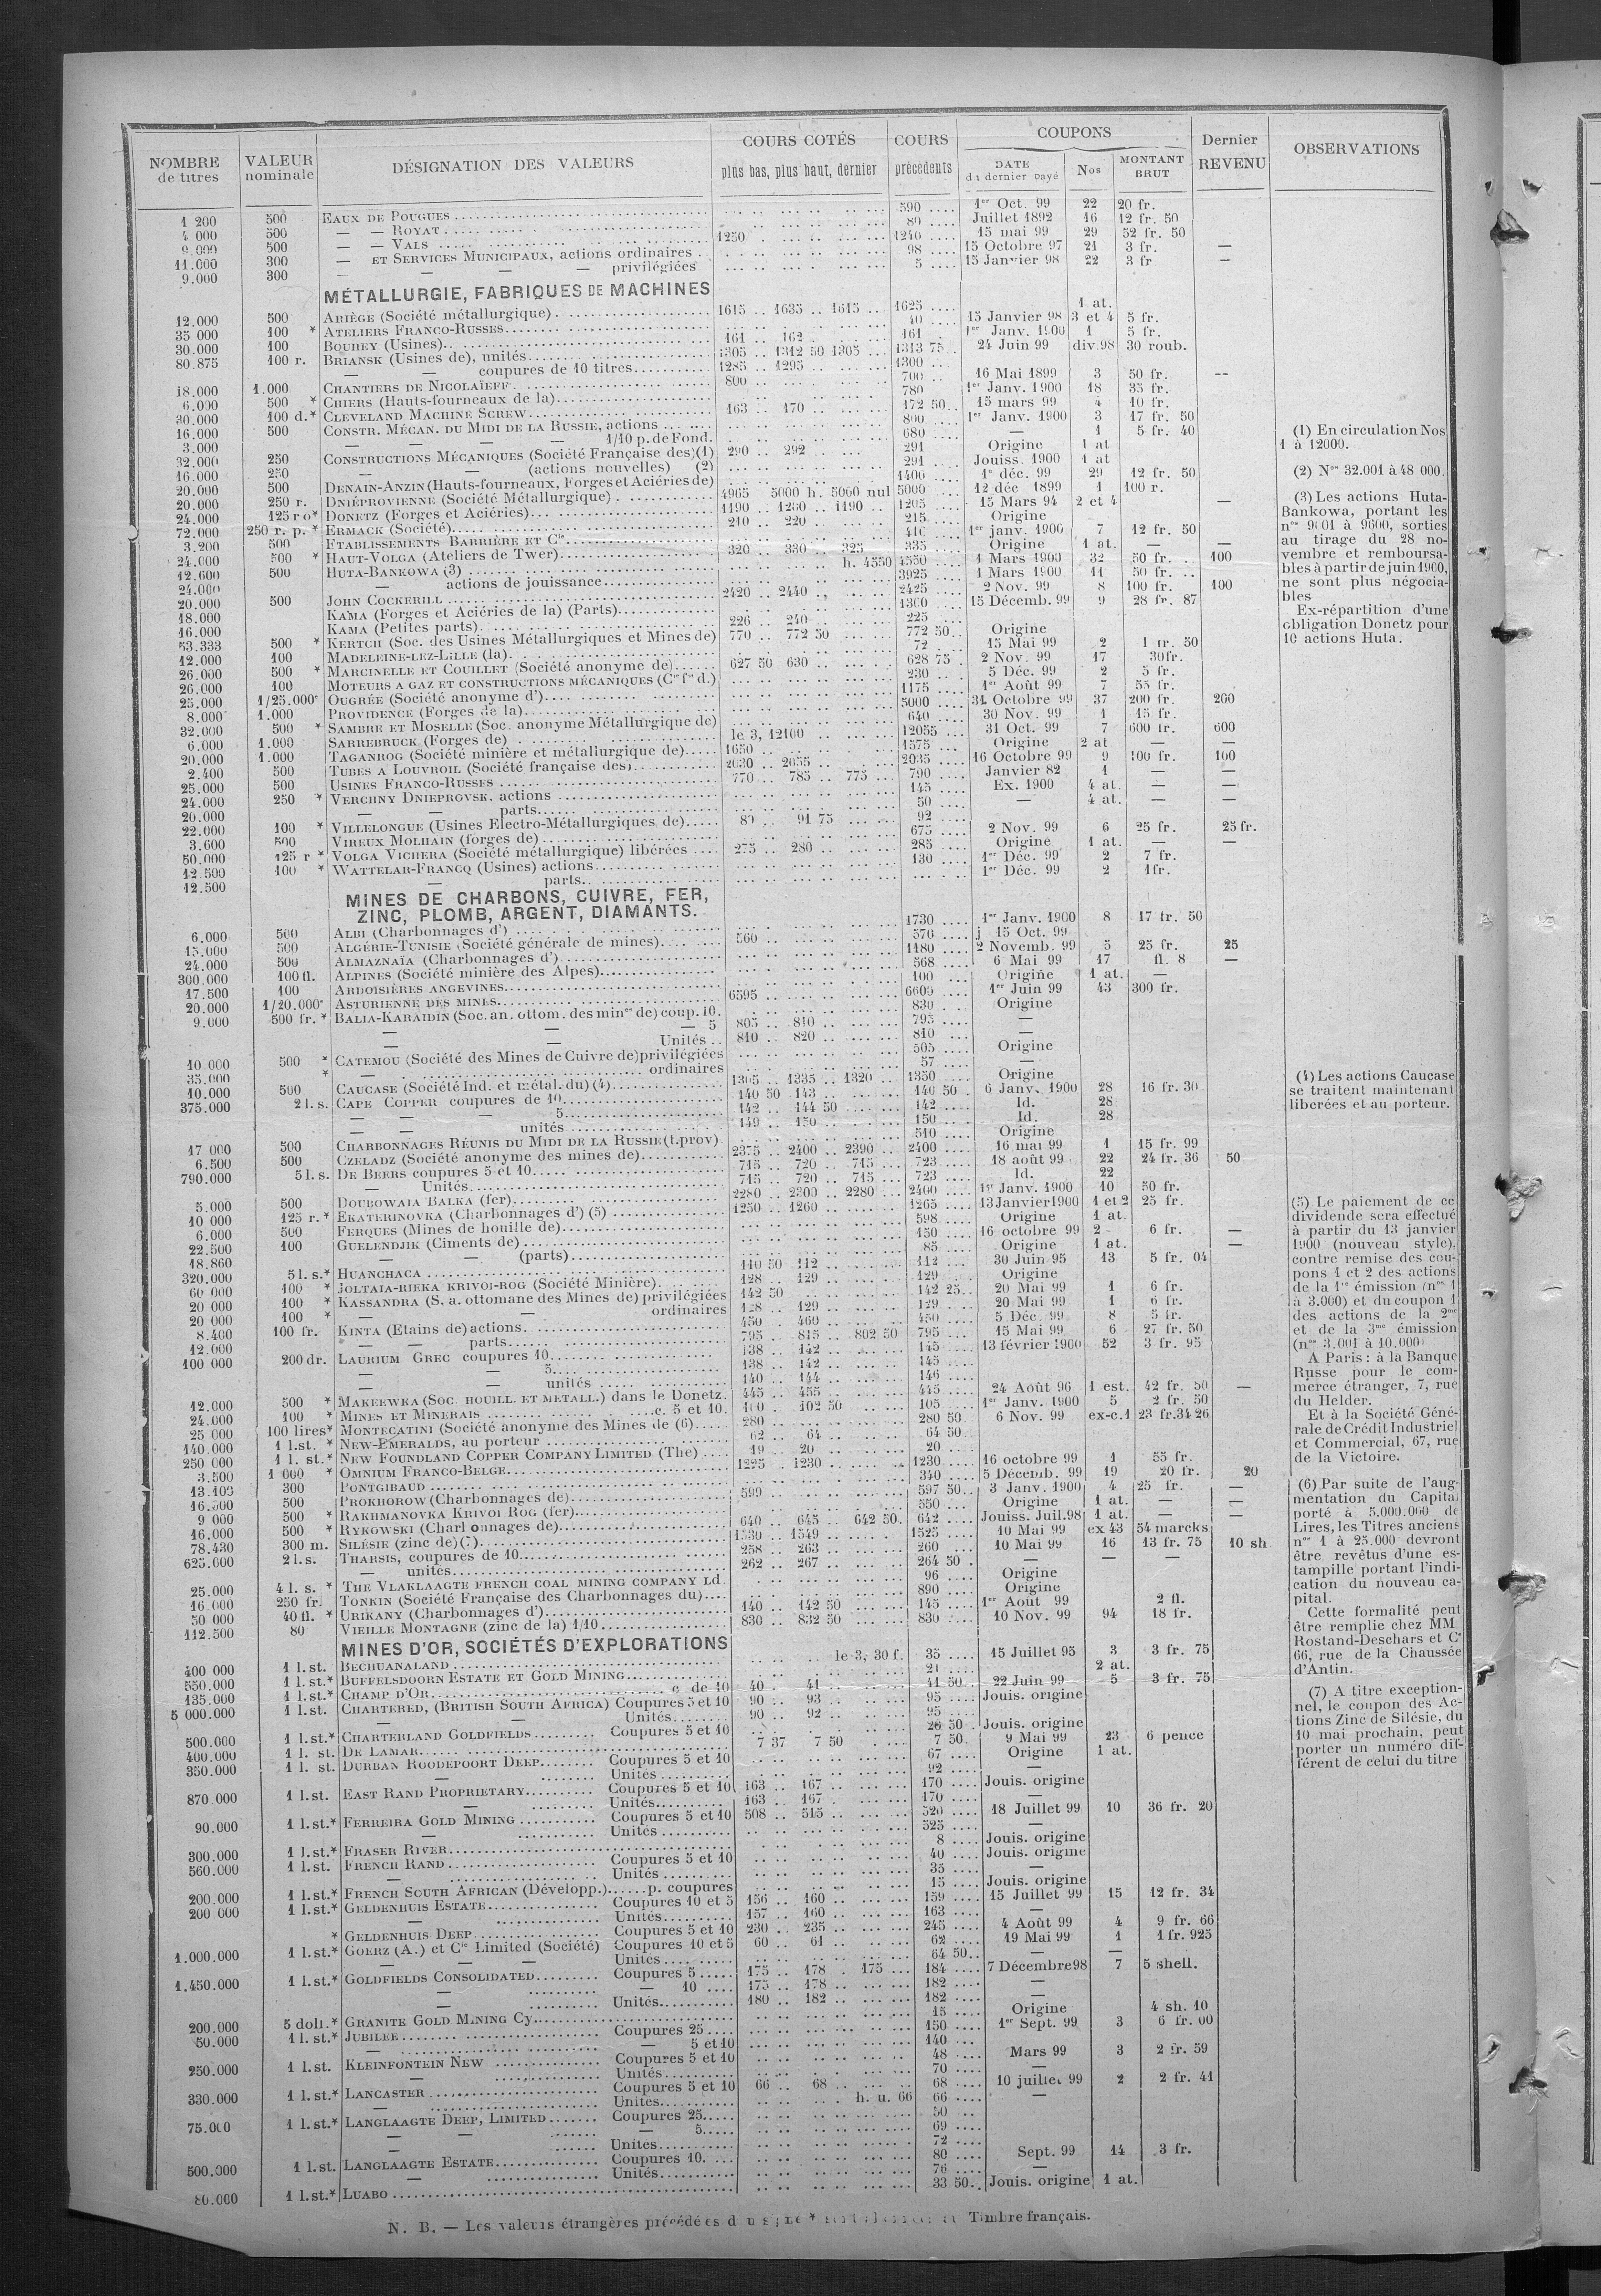 NOMBRE de titres | VALEUR nominale | DÉSIGNATION DES VALEURS | COURS COTÉS plus bas, plus haut, dernier | COURS précédents | COUPONS DATE du dernier payé | Nos | MONTANT BRUT | Dernier REVENU | OBSERVATIONS
1 200 500 EAUX DE POUGUES 590 1er Oct. 99 22 20 fr.
4 000 500 — — ROYAT 80 Juillet 1892 16 12 fr. 50
9.000 500 — — VALS 1250 1240 15 mai 99 29 52 fr. 50
11.000 300 — ET SERVICES MUNICIPAUX, actions ordinaires 98 15 Octobre 97 21 3 fr. —
9.000 300 — — — privilégiées 5 15 Janvier 98 22 3 fr —
MÉTALLURGIE, FABRIQUES DE MACHINES
12.000 500 ARIÈGE (Société métallurgique) 1615 1635 1615 1625 1 at.
35 000 100 * ATELIERS FRANCO-RUSSES 40 15 Janvier 98 3 et 4 5 fr.
30.000 100 BOUHEY (Usines) 161 162 161 1er Janv. 1900 1 5 fr.
80.875 100 r. BRIANSK (Usines de), unités 1305 1312 50 1305 1313 75 24 Juin 99 div.98 30 roub.
— — coupures de 10 titres 1285 1295 1300
18.000 1.000 CHANTIERS DE NICOLAÏEFF 800 700 16 Mai 1899 3 50 fr. —
6.000 500 * CHIERS (Hauts-fourneaux de la) 780 1er Janv. 1900 18 35 fr.
30.000 100 d.* CLEVELAND MACHINE SCREW 163 170 172 50 15 mars 99 4 10 fr.
16.000 500 CONSTR. MÉCAN. DU MIDI DE LA RUSSIE, actions 800 1er Janv. 1900 3 17 fr. 50
3.000 — — — — 1/10 p. de Fond. 680 — 1 5 fr. 40
32.000 250 CONSTRUCTIONS MÉCANIQUES (Société Française des)(1) 290 292 291 Origine 1 at
16.000 250 — — (actions nouvelles) (2) 291 Jouiss. 1900 1 at
20.000 500 DENAIN-ANZIN (Hauts-fourneaux, Forges et Aciéries de) 1400 1er déc. 99 29 12 fr. 50
20.000 250 r. DNIÉPROVIENNE (Société Métallurgique) 4965 5000 h. 5000 nul 5000 12 déc 1899 1 100 r.
24.000 125 r o* DONETZ (Forges et Aciéries) 1190 1200 1190 1205 15 Mars 94 2 et 4 —
72.000 250 r. p. * ERMACK (Société) 210 220 215 Origine
3.200 500 ETABLISSEMENTS BARRIÈRE ET Cie 410 1er janv. 1900 7 12 fr. 50
24.000 500 * HAUT-VOLGA (Ateliers de Twer) 320 330 325 335 Origine 1 at. — —
12.600 500 HUTA-BANKOWA (3) h. 4550 4550 1 Mars 1900 32 50 fr. 100
24.000 — actions de jouissance 3925 1 Mars 1900 11 50 fr.
20.000 500 JOHN COCKERILL 2420 2440 2425 2 Nov. 99 8 100 fr. 100
18.000 KAMA (Forges et Aciéries de la) (Parts) 1300 15 Décemb. 99 9 28 fr. 87
16.000 KAMA (Petites parts) 226 240 225
53.333 500 * KERTCH (Soc. des Usines Métallurgiques et Mines de) 770 772 50 772 50 Origine
12.000 100 MADELEINE-LEZ-LILLE (la) 72 15 Mai 99 2 1 fr. 50
26.000 500 * MARCINELLE ET COUILLET (Société anonyme de) 627 50 630 628 75 2 Nov. 99 17 30fr.
26.000 100 MOTEURS A GAZ ET CONSTRUCTIONS MÉCANIQUES (Cie fse d.) 230 5 Déc. 99 2 5 fr.
25.000 1/25.000e OUGRÉE (Société anonyme d') 1175 1er Août 99 7 55 fr.
8.000 1.000 PROVIDENCE (Forges de la) 5000 31 Octobre 99 37 200 fr. 200
32.000 500 * SAMBRE ET MOSELLE (Soc. anonyme Métallurgique de) 640 30 Nov. 99 1 15 fr.
6.000 1.000 SARREBRUCK (Forges de) le 3, 12100 12055 31 Oct. 99 7 600 fr. 600
20.000 1.000 TAGANROG (Société minière et métallurgique de) 1650 1575 Origine 2 at — —
2.400 500 TUBES A LOUVROIL (Société française des) 2030 2055 2035 16 Octobre 99 9 100 fr. 100
25.000 500 USINES FRANCO-RUSSES 770 785 775 790 Janvier 82 1 — —
24.000 250 * VERCHNY DNIEPROVSK. actions 145 Ex. 1900 4 at. — —
20.000 — — parts 50 — 4 at. — —
22.000 100 * VILLELONGUE (Usines Electro-Métallurgiques de) 89 91 75 92
3.600 500 VIREUX MOLHAIN (forges de) 675 2 Nov. 99 6 25 fr. 25 fr.
50.000 125 r * VOLGA VICHERA (Société métallurgique) libérées 275 280 285 Origine 1 at. — —
12.500 100 * WATTELAR-FRANCQ (Usines) actions 130 1er Déc. 99 2 7 fr.
12.500 — parts 1er Déc. 99 2 1fr.
MINES DE CHARBONS, CUIVRE, FER,
ZINC, PLOMB, ARGENT, DIAMANTS.
6.000 500 ALBI (Charbonnages d') 1730 1er Janv. 1900 8 17 fr. 50
15.000 500 ALGÉRIE-TUNISIE (Société générale de mines) 560 570 j 15 Oct. 99
24.000 500 ALMAZNAÏA (Charbonnages d') 1180 2 Novemb. 99 5 25 fr. 25
300.000 100 fl. ALPINES (Société minière des Alpes) 568 6 Mai 99 17 fl. 8 —
17.500 100 ARDOISIÈRES ANGEVINES 100 Origine 1 at. —
20.000 1/20.000e ASTURIENNE DES MINES 6595 6600 1er Juin 99 43 300 fr.
9.000 500 fr. * BALIA-KARAIDIN (Soc. an. ottom. des mines de) coup. 10. 830 Origine
— — — 5 805 810 795 —
— — Unités 810 820 810 —
10.000 500 * CATEMOU (Société des Mines de Cuivre de) privilégiées 505 Origine
35.000 * — ordinaires 57 —
10.000 500 CAUCASE (Société Ind. et métal. du) (4) 1305 1335 1320 1350 Origine
375.000 2 l. s. CAPE COPPER coupures de 10 140 50 143 140 50 6 Janv. 1900 28 16 fr. 30
— — — 5 142 144 50 142 Id. 28
— — unités 149 150 150 Id. 28
17 000 500 CHARBONNAGES RÉUNIS DU MIDI DE LA RUSSIE (t. prov) 510 Origine
6.500 500 CZELADZ (Société anonyme des mines de) 2375 2400 2390 2400 16 mai 99 1 15 fr. 99
790.000 5 l. s. DE BEERS coupures 5 et 10 715 720 715 723 18 août 99 22 24 fr. 36 50
— Unités 715 720 715 723 Id. 22
5.000 500 DOUBOWAIA BALKA (fer) 2280 2300 2280 2400 1er Janv. 1900 10 50 fr.
10 000 125 r. * EKATERINOVKA (Charbonnages d') (5) 1250 1260 1265 13 Janvier 1900 1 et 2 25 fr.
6.000 500 FERQUES (Mines de houille de) 598 Origine 1 at.
22.500 100 GUELENDJIK (Ciments de) 150 16 octobre 99 2 6 fr. —
18.860 — — (parts) 85 Origine 1 at. —
320.000 5 l. s.* HUANCHACA 110 50 112 112 30 Juin 95 13 5 fr. 04
60 000 100 * JOLTAIA-RIEKA KRIVOI-ROG (Société Minière) 128 129 129 Origine
20 000 100 * KASSANDRA (S. a. ottomane des Mines de) privilégiées 142 50 142 25 20 Mai 99 1 6 fr.
20 000 100 * — — ordinaires 128 129 129 20 Mai 99 1 6 fr.
8.400 100 fr. KINTA (Etains de) actions 450 460 450 5 Déc. 99 8 5 fr.
12.000 — — parts 795 815 802 50 795 15 Mai 99 6 27 fr. 50
100 000 200 dr. LAURIUM GREC coupures 10 138 142 145 13 février 1900 52 3 fr. 95
— — 5 138 142 145
— — unités 140 144 146
12.000 500 * MAKEEWKA (SOC. HOUILL. ET METALL.) dans le Donetz. 445 455 445 24 Août 96 1 est. 42 fr. 50 —
24.000 100 * MINES ET MINERAIS c. 5 et 10. 100 102 50 105 1er Janv. 1900 5 2 fr. 50
25 000 100 lires* MONTECATINI (Société anonyme des Mines de (6) 280 280 50 6 Nov. 99 ex-c.1 23 fr.34 26
140.000 1 l.st. * NEW-EMERALDS, au porteur 62 64 64 50
250 000 1 l. st.* NEW FOUNDLAND COPPER COMPANY LIMITED (The) 19 20 20
3.500 1 000 * OMNIUM FRANCO-BELGE 1225 1230 1230 16 octobre 99 1 55 fr.
13.100 300 PONTGIBAUD 340 5 Décemb. 99 19 20 fr. 20
16.500 500 PROKHOROW (Charbonnages de) 599 597 50 3 Janv. 1900 4 25 fr. —
9 000 500 * RAKHMANOVKA KRIVOI ROG (fer) 550 Origine 1 at. — —
16.000 500 * RYKOWSKI (Charbonnages de) 640 645 642 50 642 Jouiss. Juil.98 1 at. — —
78.430 300 m. SILÉSIE (zinc de) (7) 1530 1549 1525 10 Mai 99 ex 43 54 marcks
625.000 2 l.s. THARSIS, coupures de 10 258 263 260 10 Mai 99 16 13 fr. 75 10 sh
— unités 262 267 264 50 — — —
25.000 4 l. s. * THE VLAKLAAGTE FRENCH COAL MINING COMPANY LD 96 Origine
16.000 250 fr. TONKIN (Société Française des Charbonnages du) 890 Origine
50 000 40 fl. * URIKANY (Charbonnages d') 140 142 50 145 1er Août 99 2 fl.
112.500 80 VIEILLE MONTAGNE (zinc de la) 1/10 830 832 50 830 10 Nov. 99 94 18 fr.
MINES D'OR, SOCIÉTÉS D'EXPLORATIONS
400 000 1 l. st. BECHUANALAND le 3, 30 f. 35 15 Juillet 95 3 3 fr. 75
550.000 1 l. st.* BUFFELSDOORN ESTATE ET GOLD MINING 21 2 at.
135.000 1 l. st.* CHAMP D'OR c de 10 40 41 41 50 22 Juin 99 5 3 fr. 75
5 000.000 1 l. st. CHARTERED, (BRITISH SOUTH AFRICA) Coupures 5 et 10 90 93 95 Jouis. origine
— — Unités 90 92 95
500.000 1 l. st.* CHARTERLAND GOLDFIELDS Coupures 5 et 10 26 50 Jouis. origine
400.000 1 l. st. DE LAMAR 7 37 7 50 7 50 9 Mai 99 23 6 pence
350.000 1 l. st. DURBAN ROODEPOORT DEEP Coupures 5 et 10 67 Origine 1 at.
— Unités 92 —
870 000 1 l. st. EAST RAND PROPRIETARY Coupures 5 et 10 163 167 170 Jouis. origine
— Unités 163 167 170 —
90.000 1 l. st.* FERREIRA GOLD MINING Coupures 5 et 10 508 515 520 18 Juillet 99 10 36 fr. 20
— Unités 525 —
300.000 1 l. st.* FRASER RIVER 8 Jouis. origine
560.000 1 l. st. FRENCH RAND Coupures 5 et 10 40 Jouis. origine
— Unités 35 —
200.000 1 l. st.* FRENCH SOUTH AFRICAN (Développ.) p. coupures 15 Jouis. origine
200 000 1 l. st.* GELDENHUIS ESTATE Coupures 10 et 5 156 160 159 15 Juillet 99 15 12 fr. 34
— Unités 157 160 163 —
* GELDENHUIS DEEP Coupures 5 et 10 230 235 245 4 Août 99 4 9 fr. 66
1.000.000 1 l. st.* GOERZ (A.) et Cie Limited (Société) Coupures 10 et 5 60 61 62 19 Mai 99 1 1 fr. 925
— — — Unités 64 50 — —
1.450.000 1 l. st.* GOLDFIELDS CONSOLIDATED Coupures 5 175 178 175 184 7 Décembre 98 7 5 shell.
— — 10 175 178 182 —
— Unités 180 182 182 —
200.000 5 doll.* GRANITE GOLD MINING Cy 15 Origine 4 sh. 10
50.000 1 l. st.* JUBILEE Coupures 25 150 1er Sept. 99 3 6 fr. 00
— — 5 et 10 140
250.000 1 l. st. KLEINFONTEIN NEW Coupures 5 et 10 48 Mars 99 3 2 fr. 59
— Unités 70 —
330.000 1 l. st.* LANCASTER Coupures 5 et 10 66 68 68 10 juillet 99 2 2 fr. 41
— Unités h. u. 66 66 —
75.000 1 l. st.* LANGLAAGTE DEEP, LIMITED Coupures 25 50
— — — 5 69
— Unités 72
500.000 1 l. st. LANGLAAGTE ESTATE Coupures 10 80 Sept. 99 14 3 fr.
— Unités 76 —
80.000 1 l. st.* LUABO 33 50 Jouis. origine 1 at.
(1) En circulation Nos
1 à 12000.
(2) Nos 32.001 à 48 000.
(3) Les actions Huta-
Bankowa, portant les
nos 9601 à 9600, sorties
au tirage du 28 no-
vembre et remboursa-
bles à partir de juin 1900,
ne sont plus négocia-
bles
Ex-répartition d'une
obligation Donetz pour
10 actions Huta.
(4) Les actions Caucase
se traitent maintenant
libérées et au porteur.
(5) Le paiement de ce
dividende sera effectué
à partir du 13 janvier
1900 (nouveau style),
contre remise des cou-
pons 1 et 2 des actions
de la 1re émission (nos 1
à 3.000) et du coupon 1
des actions de la 2me
et de la 3me émission
(nos 3.001 à 10.000)
A Paris : à la Banque
Russe pour le com-
merce étranger, 7, rue
du Helder.
Et à la Société Géné-
rale de Crédit Industriel
et Commercial, 67, rue
de la Victoire.
(6) Par suite de l'aug-
mentation du Capital
porté à 5.000.000 de
Lires, les Titres anciens
nos 1 à 25.000 devront
être revêtus d'une es-
tampille portant l'indi-
cation du nouveau ca-
pital.
Cette formalité peut
être remplie chez MM.
Rostand-Deschars et Ce
66, rue de la Chaussée
d'Antin.
(7) A titre exception-
nel, le coupon des Ac-
tions Zinc de Silésie, du
10 mai prochain, peut
porter un numéro dif-
férent de celui du titre
N. B. — Les valeurs étrangères précédées du signe * Timbre français.